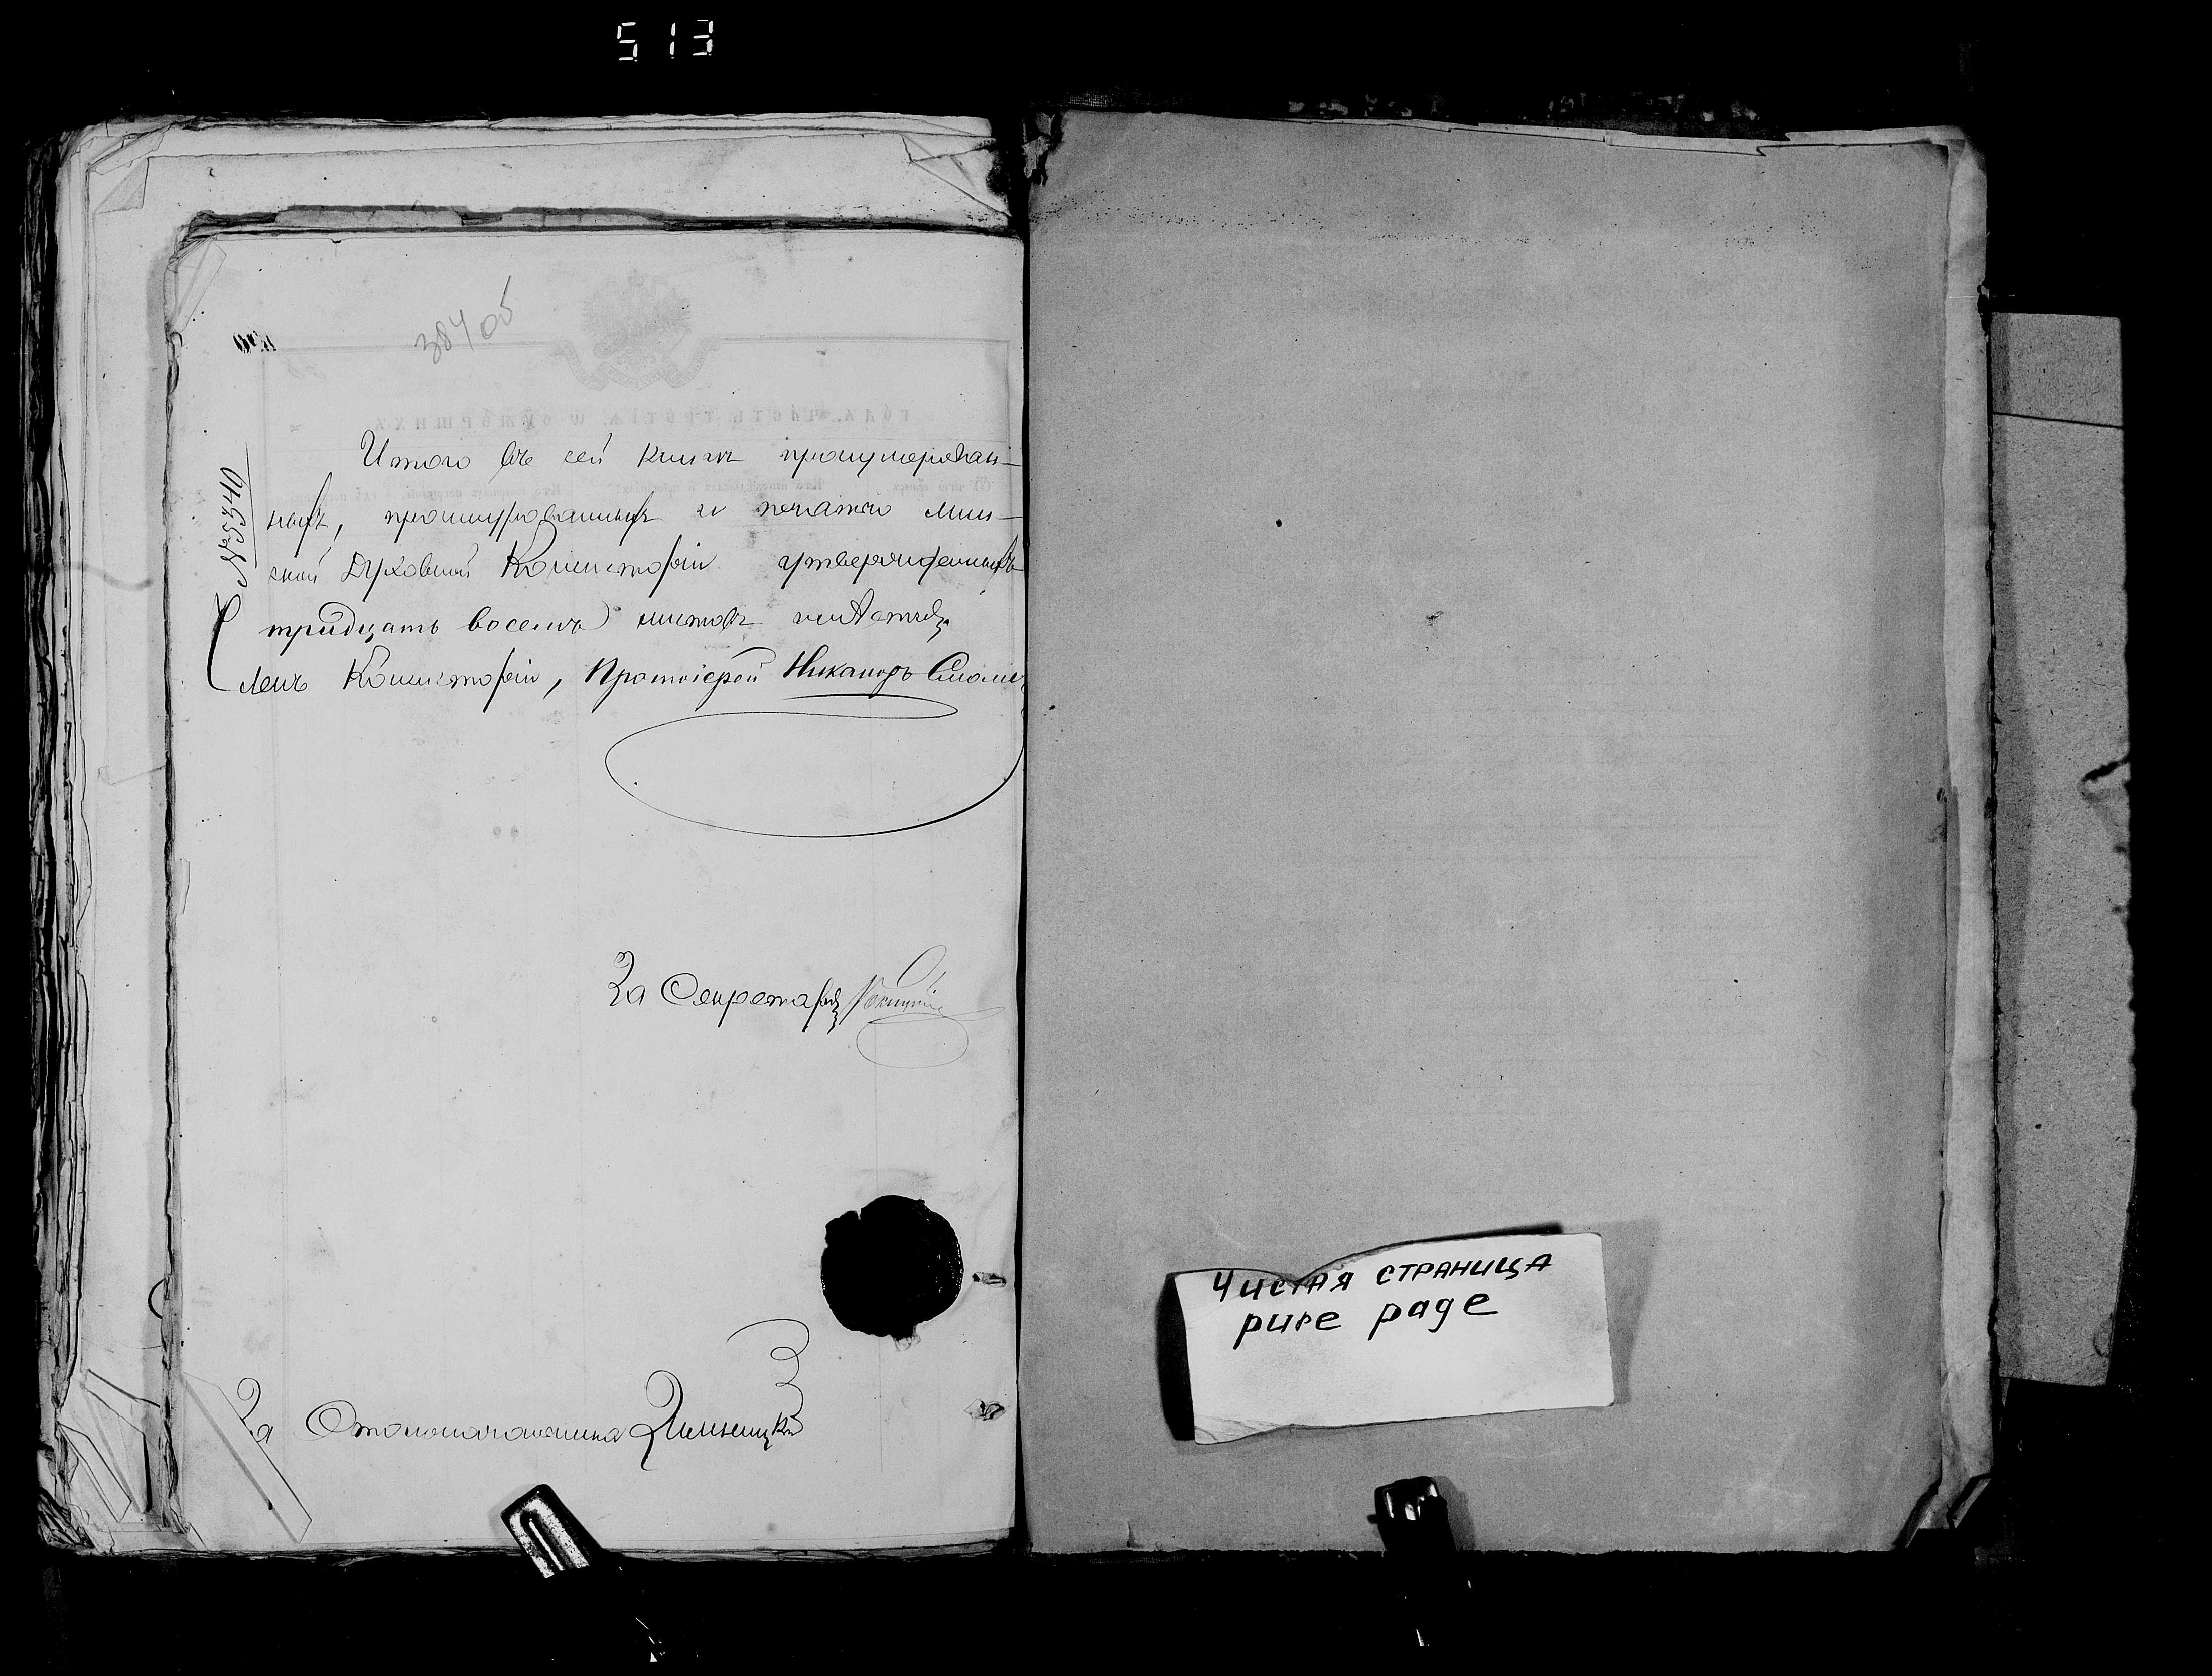 513
384 об
№ 5340
Итого въ сей книгѣ пронумерован-
ныхъ, прошнурованныхъ и печатью Мин-
ской Духовной Консисторіи утвержденныхъ
тридцать восемь листовъ имѣется
Членъ Консисторіи, Протоіерей Никаноръ
За Секретаря
За Столоначальника
Чистая страница
pure page